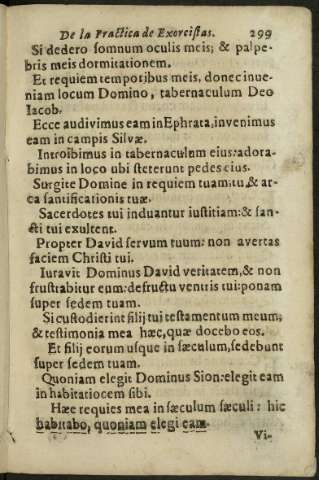 De la Practica de Exorcistas. 299
Si dedero somnum oculis meis; & palpe-
bris meis dormitationem.
Et requiem temporibus meis, donec inue-
niam locum Domino, tabernaculum Deo
Iacob.
Ecce audivimus eam in Ephrata, invenimus
eam in campis Silvæ.
Introîbimus in tabernaculum eius: adora-
bimus in loco ubi steterunt pedes eius.
Surgite Domine in requiem tuam: tu, & ar-
ca santificationis tuæ.
Sacerdotes tui induantur iustitiam: & san-
cti tui exultent.
Propter David servum tuum: non avertas
faciem Christi tui.
Iuravit Dominus David veritatem, & non
frustrabitur eum: de fructu ventris tui: ponam
super sedem tuam.
Si custodierint filij tui testamentum meum;
& testimonia mea hæc, quæ docebo eos.
Et filij eorum usque in sæculum, sedebunt
super sedem tuam.
Quoniam elegit Dominus Sion: elegit eam
in habitationem sibi.
Hæc requies mea in sæculum sæculi: hic
habitabo, quoniam elegi eam.
Vi-